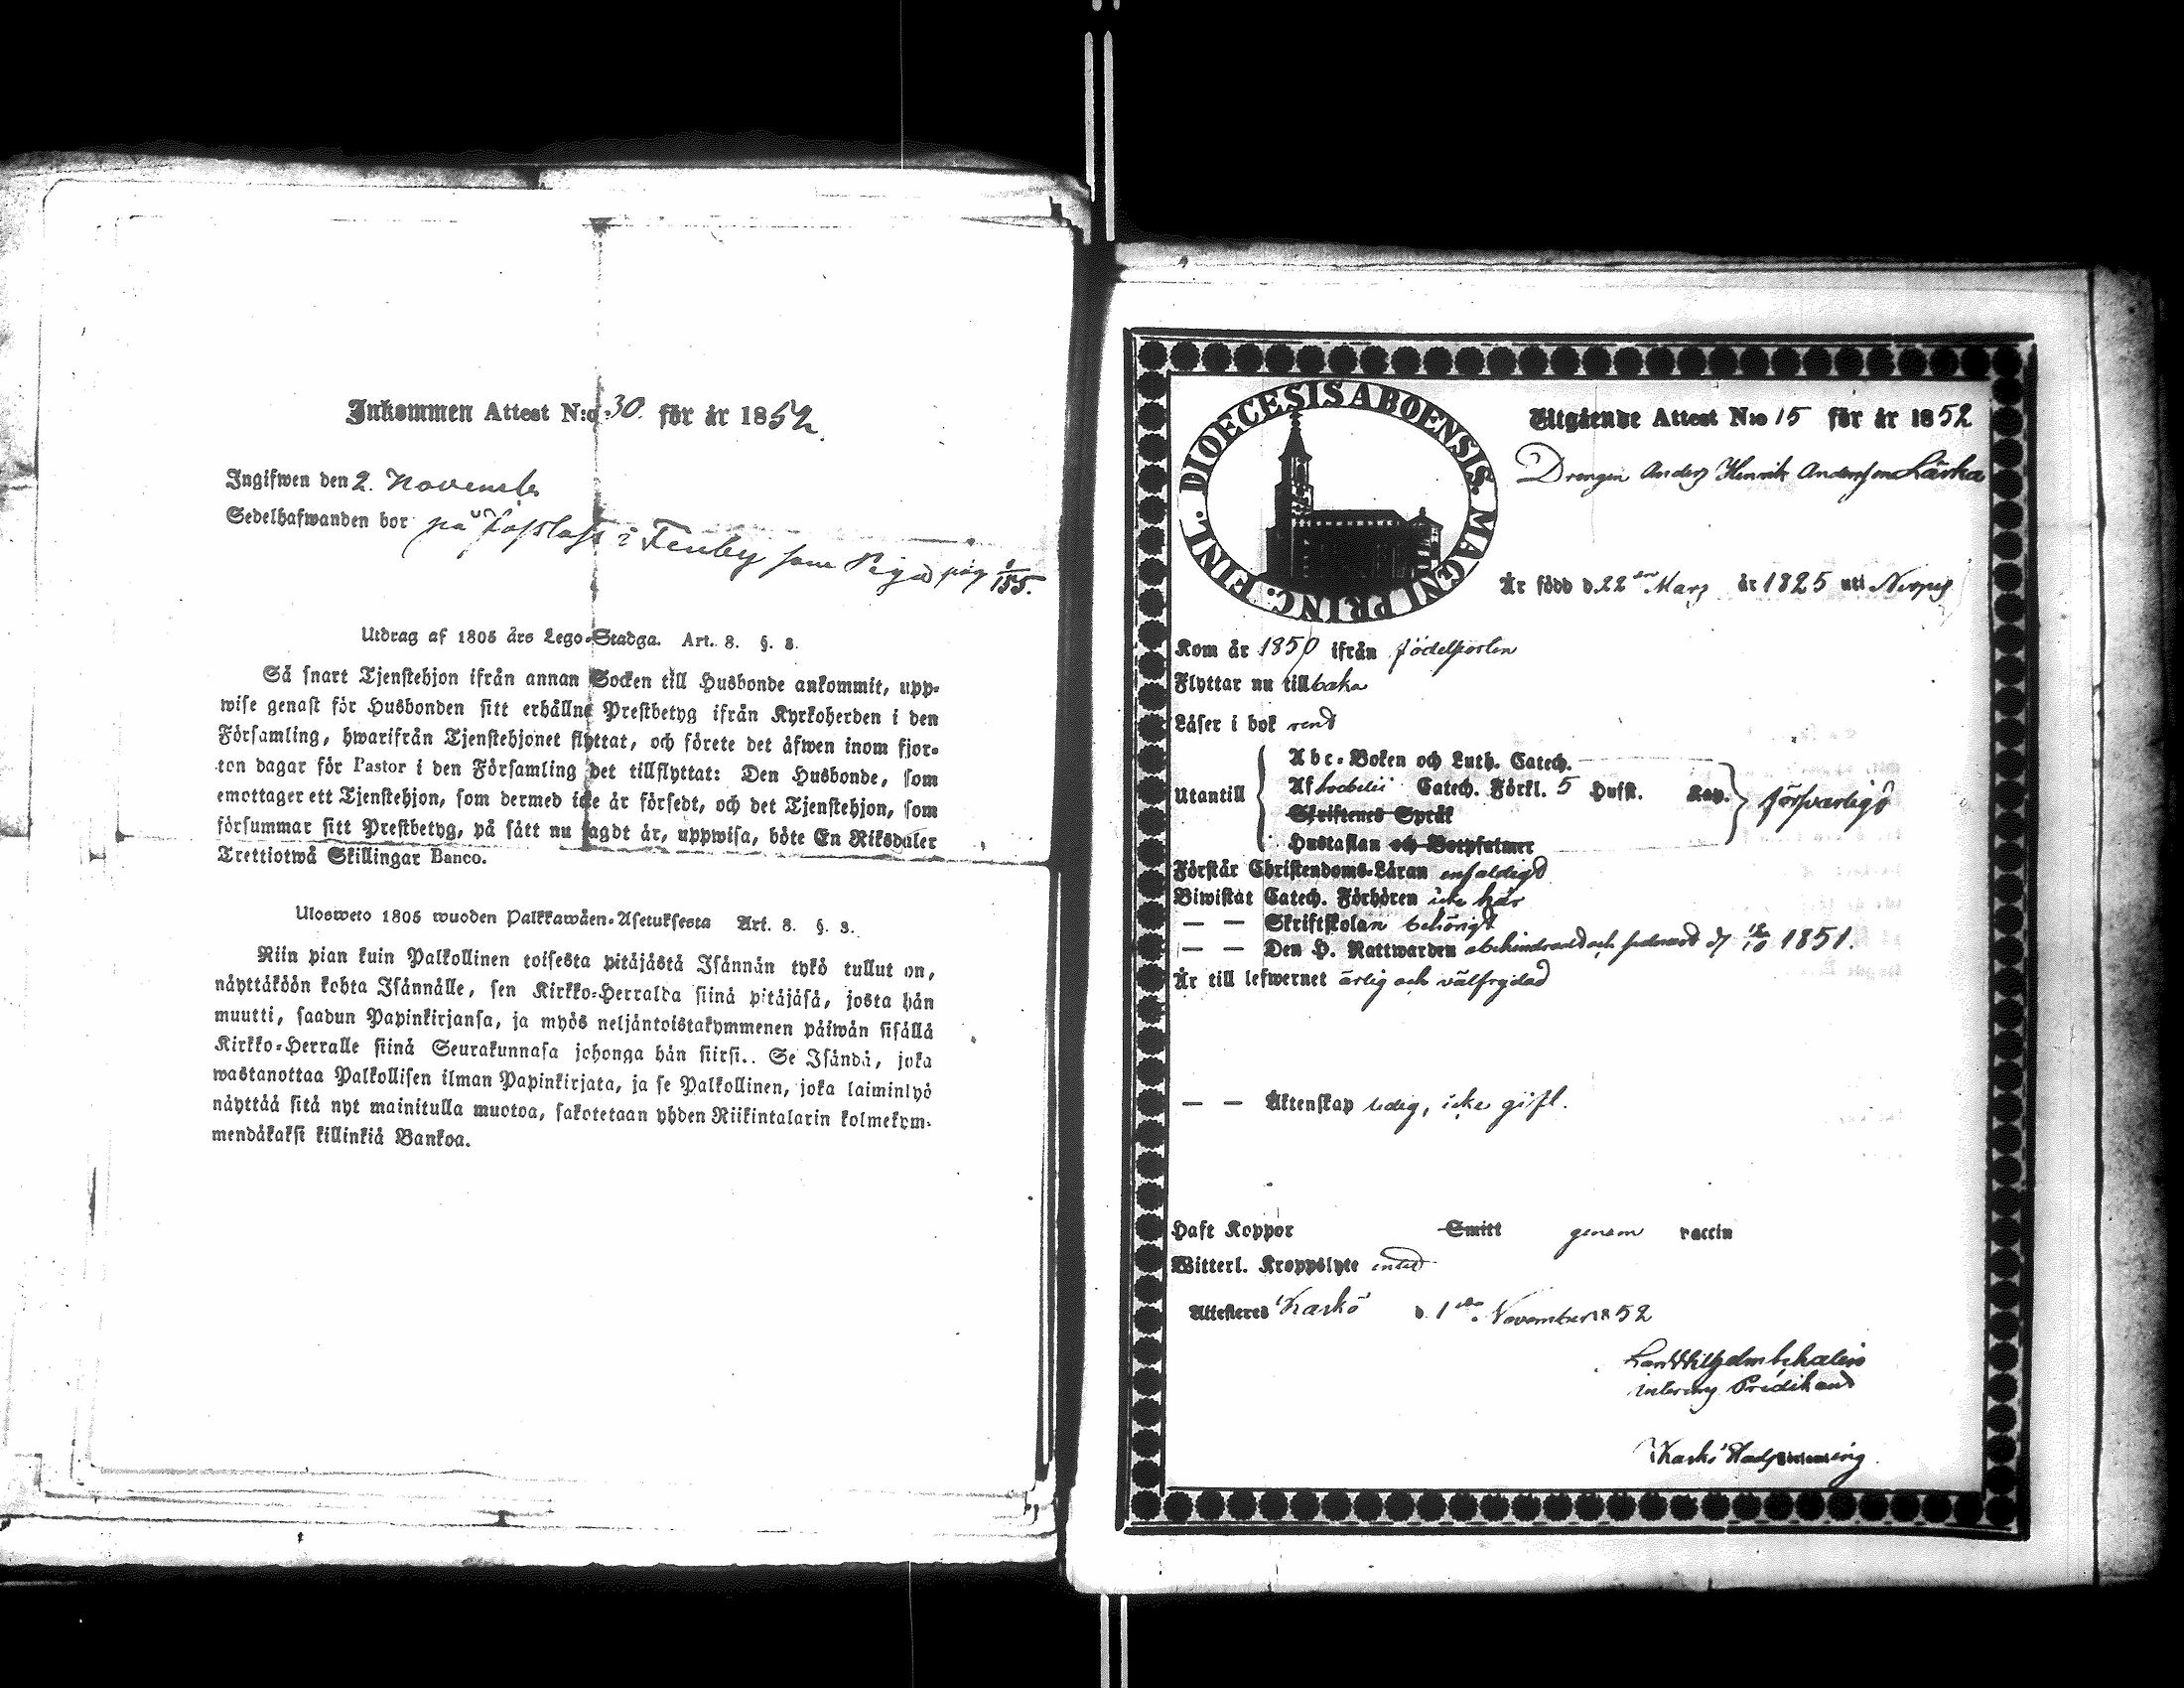 Inkommen Attest N:o 30. för år 1852.
Ingifwen den 2. Novemb
Sedelhafwanden bor på i som Piga pag 1/155.
Utdrag af 1805 års Lego-Stadga. Art. 8. §. 3.
Så snart Tjenstehjon ifrån annan Socken till Husbonde ankommit, upp-
wise genast för Husbonden sitt erhållne Prestbetyg ifrån Kyrkoherden i den
Församling, hwarifrån Tjenstehjonet flyttat, och förete det äfwen inom fjor-
ton dagar för Pastor i den Församling det tillflyttat: Den Husbonde, som
emottager ett Tjenstehjon, som dermed icke är försedt, och det Tjenstehjon, som
försummar sitt Prestbetyg, på sätt nu sagdt är, uppwisa, böte En Riksdaler
Trettiotwå Skillingar Banco.
Ulosweto 1805 wuoden Palkkawäen-Asetuksesta Art. 8. §. 3.
Niin pian kuin Palkollinen toisesta pitäjästä Isännän tykö tullut on,
näyttäköön kohta Isännälle, sen Kirkko-Herralda siinä pitäjäsä, josta hän
muutti, saadun Papinkirjansa, ja myös neljäntoistakymmenen päiwän sisällä
Kirkko-Herralle siinä Seurakunnasa johonga hän siirsi.. Se Isändä, joka
wastanottaa Palkollisen ilman Papinkirjata, ja se Palkollinen, joka laiminlyö
näyttää sitä nyt mainitulla muotoa, sakotetaan yhden Riikintalarin kolmekym-
mendäkaksi killinkiä Bankoa.
DIOECESIS ABOENSIS. MAGNI PRINC. FINL.
Utgående Attest N:o 15 för år 1852
Drengen Anders Henrik Andersson Lärka
Är född d. 22 den Mars år 1825 uti
Kom år 1850 ifrån födelseorten
Flyttar nu tillbaka
Läser i bok rent
Abc-Boken och Luth. Catech.
Utantill Af Catech. Förkl. 5 Hufst. Kap. försvarligt
Skriftenes Språk
Hustaflan och Botpsalmer
Förstår Christendoms-Läran enfaldigt
Biwistat Catech. Förhören icke här
— — Skriftskolan behörigt
— — Den H. Nattwarden obehindrad och senast d 1851.
Är till lefwernet ärlig och välfrejdad
— — Äktenskap ledig, icke gift.
Haft Koppor Smitt genom vaccin
Witterl. Kroppslyte intet
Attesteras Kaskö d. 1 November 1852
Predikant
Kaskö